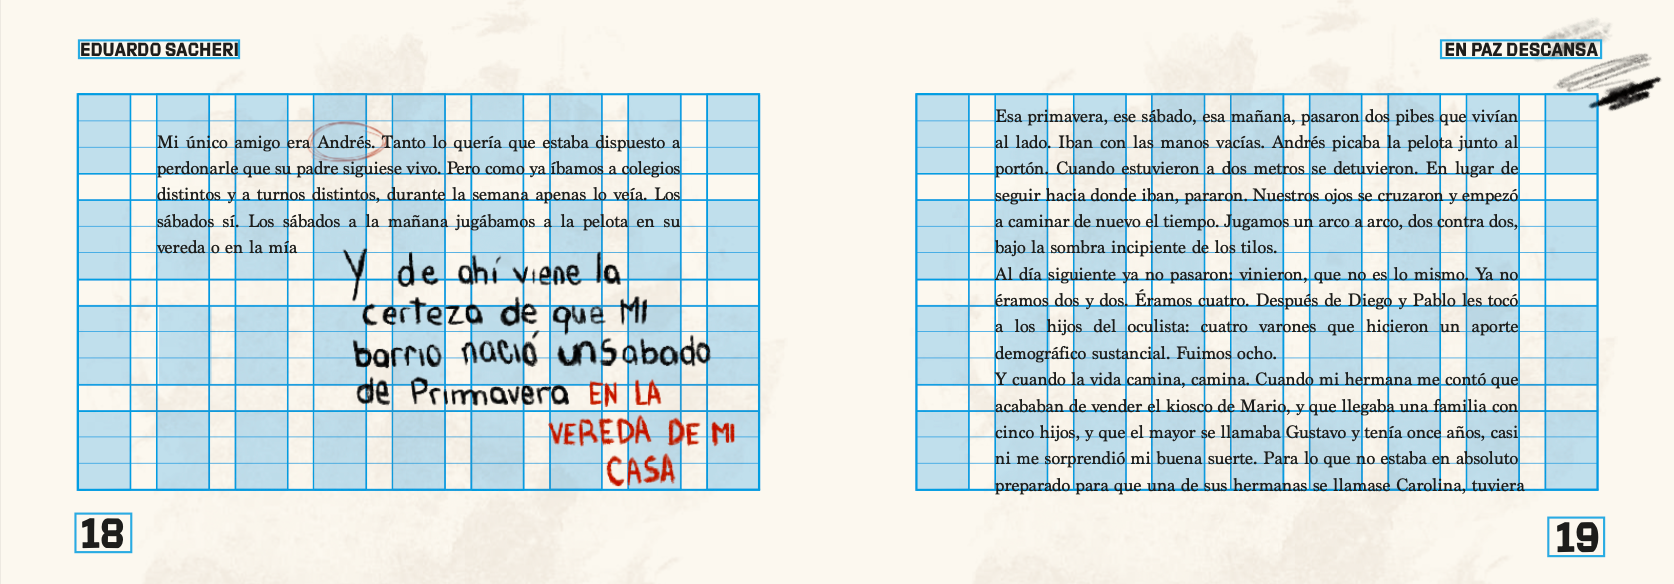 EDUARDO SACHERI
Mi único amigo era Andrés. Tanto lo quería que estaba dispuesto a
perdonarle que su padre siguiese vivo. Pero como ya íbamos a colegios
distintos y a turnos distintos, durante la semana apenas lo veía. Los
sábados sí. Los sábados a la mañana jugábamos a la pelota en su
vereda o en la mía
Y de ahí viene la
certeza de que MI
barrio nació un Sabado
de Primavera EN LA
VEREDA DE MI
CASA
18
EN PAZ DESCANSA
Esa primavera, ese sábado, esa mañana, pasaron dos pibes que vivían
al lado. Iban con las manos vacías. Andrés picaba la pelota junto al
portón. Cuando estuvieron a dos metros se detuvieron. En lugar de
seguir hacia donde iban, pararon. Nuestros ojos se cruzaron y empezó
a caminar de nuevo el tiempo. Jugamos un arco a arco, dos contra dos,
bajo la sombra incipiente de los tilos.
Al día siguiente ya no pasaron: vinieron, que no es lo mismo. Ya no
éramos dos y dos. Éramos cuatro. Después de Diego y Pablo les tocó
a los hijos del oculista: cuatro varones que hicieron un aporte
demográfico sustancial. Fuimos ocho.
Y cuando la vida camina, camina. Cuando mi hermana me contó que
acababan de vender el kiosco de Mario, y que llegaba una familia con
cinco hijos, y que el mayor se llamaba Gustavo y tenía once años, casi
ni me sorprendió mi buena suerte. Para lo que no estaba en absoluto
preparado para que una de sus hermanas se llamase Carolina, tuviera
19